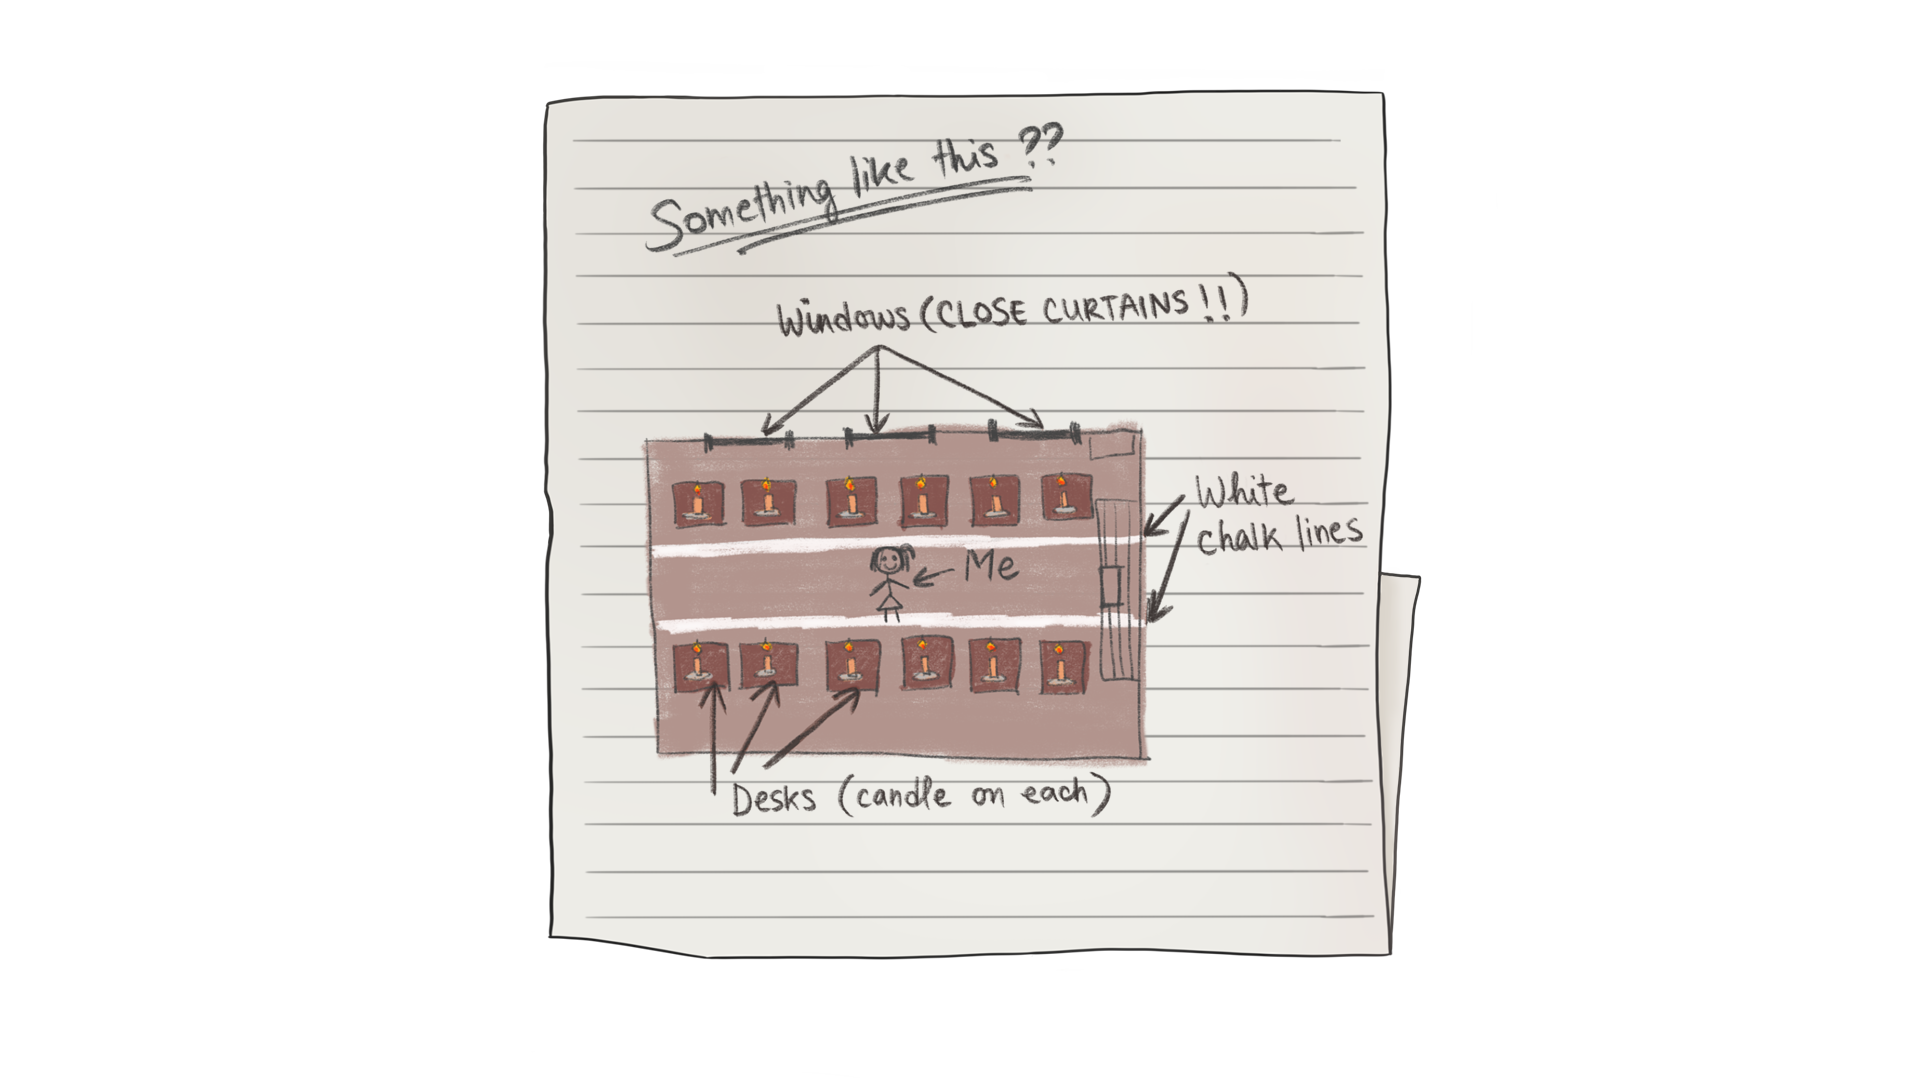 Something like this ??
Windows (CLOSE CURTAINS !!)
White
chalk lines
Me
Desks (candle on each)